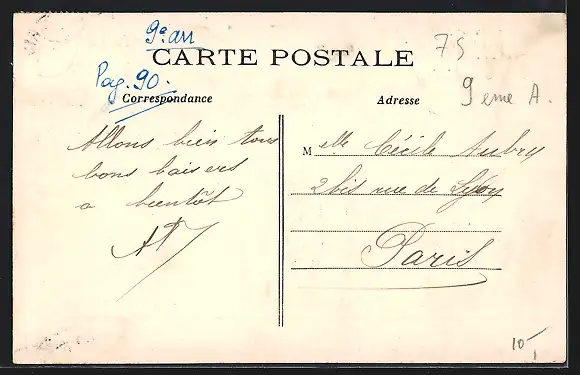 9e arr
75
CARTE POSTALE
Pag. 90.
9 eme A.
Correspondance
Adresse
Allons bien tous
bons baisers
a bientôt
M elle Cécile Aubry
2 bis rue de Lyon
Paris
10